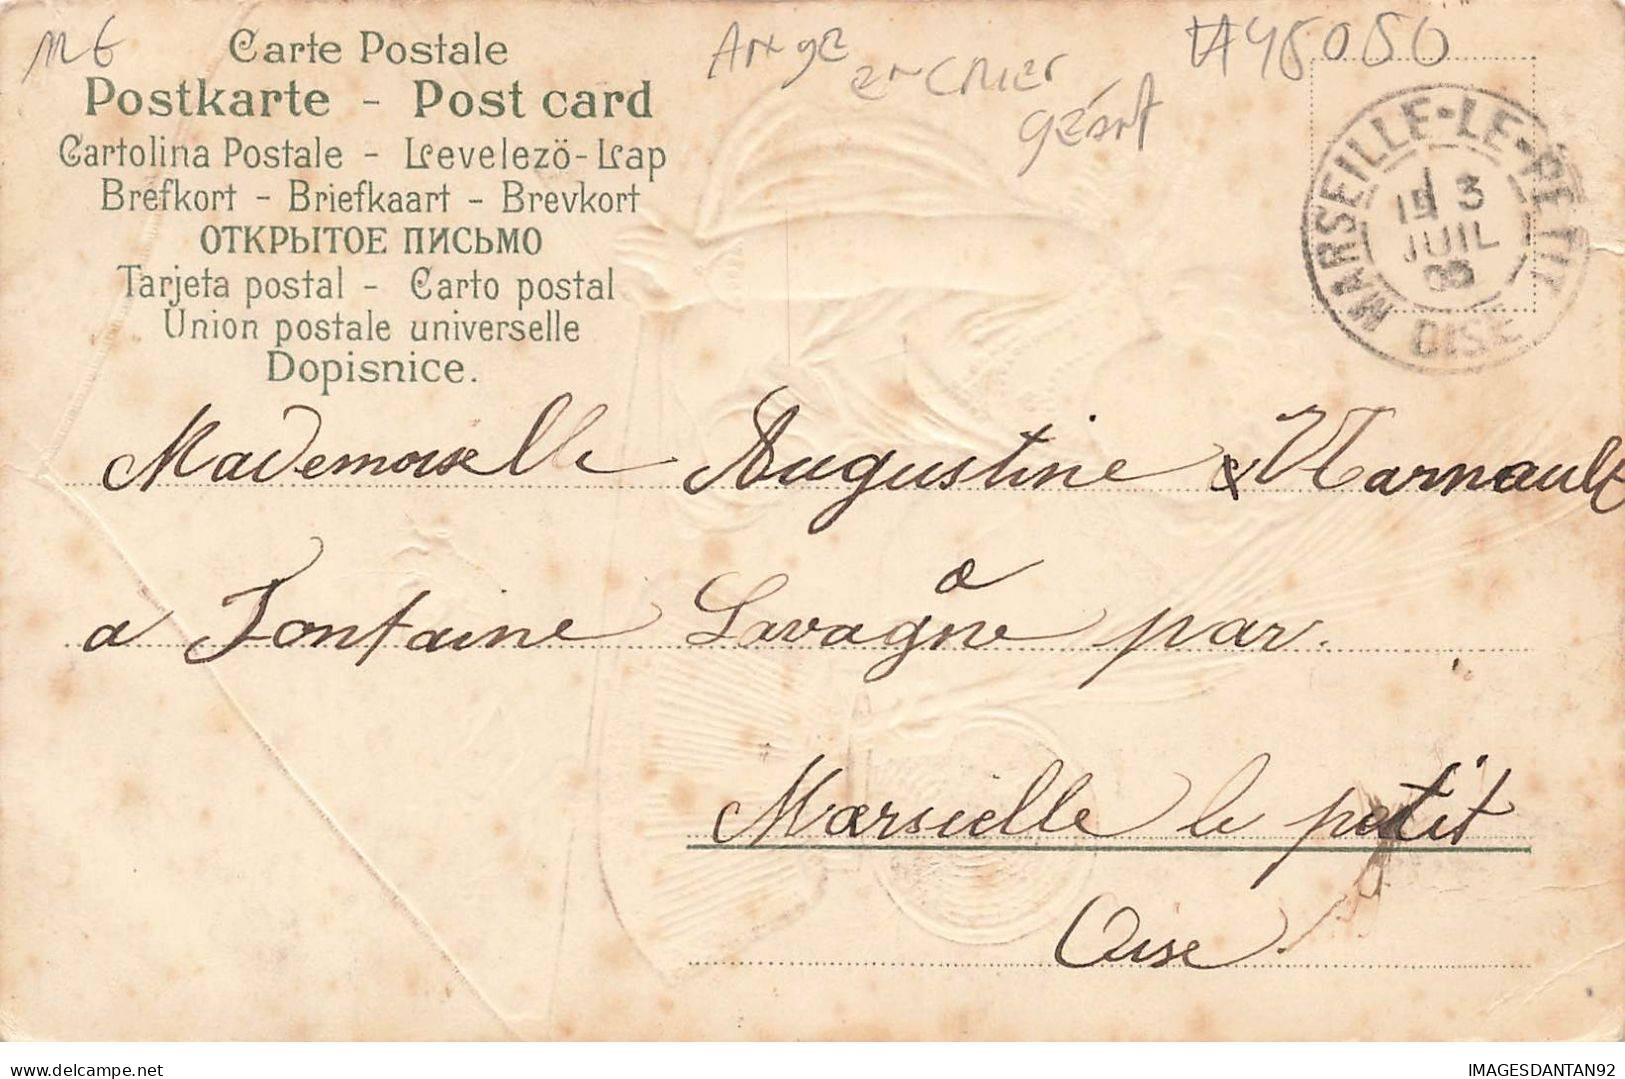 M6
Carte Postale
Postkarte - Post card
Cartolina Postale - Levelezö-Lap
Brefkort - Briefkaart - Brevkort
ОТКРЫТОЕ ПИСЬМО
Tarjeta postal - Carto postal
Union postale universelle
Dopisnice.
Ange
encrier
géant
MARSEILLE-LE-PETIT
15 3
JUIL
OISE
Mademoiselle Augustine Warnault
a Fontaine Lavagne par.
a
Marsielle le petit
Oise.
IMAGESDANTAN92